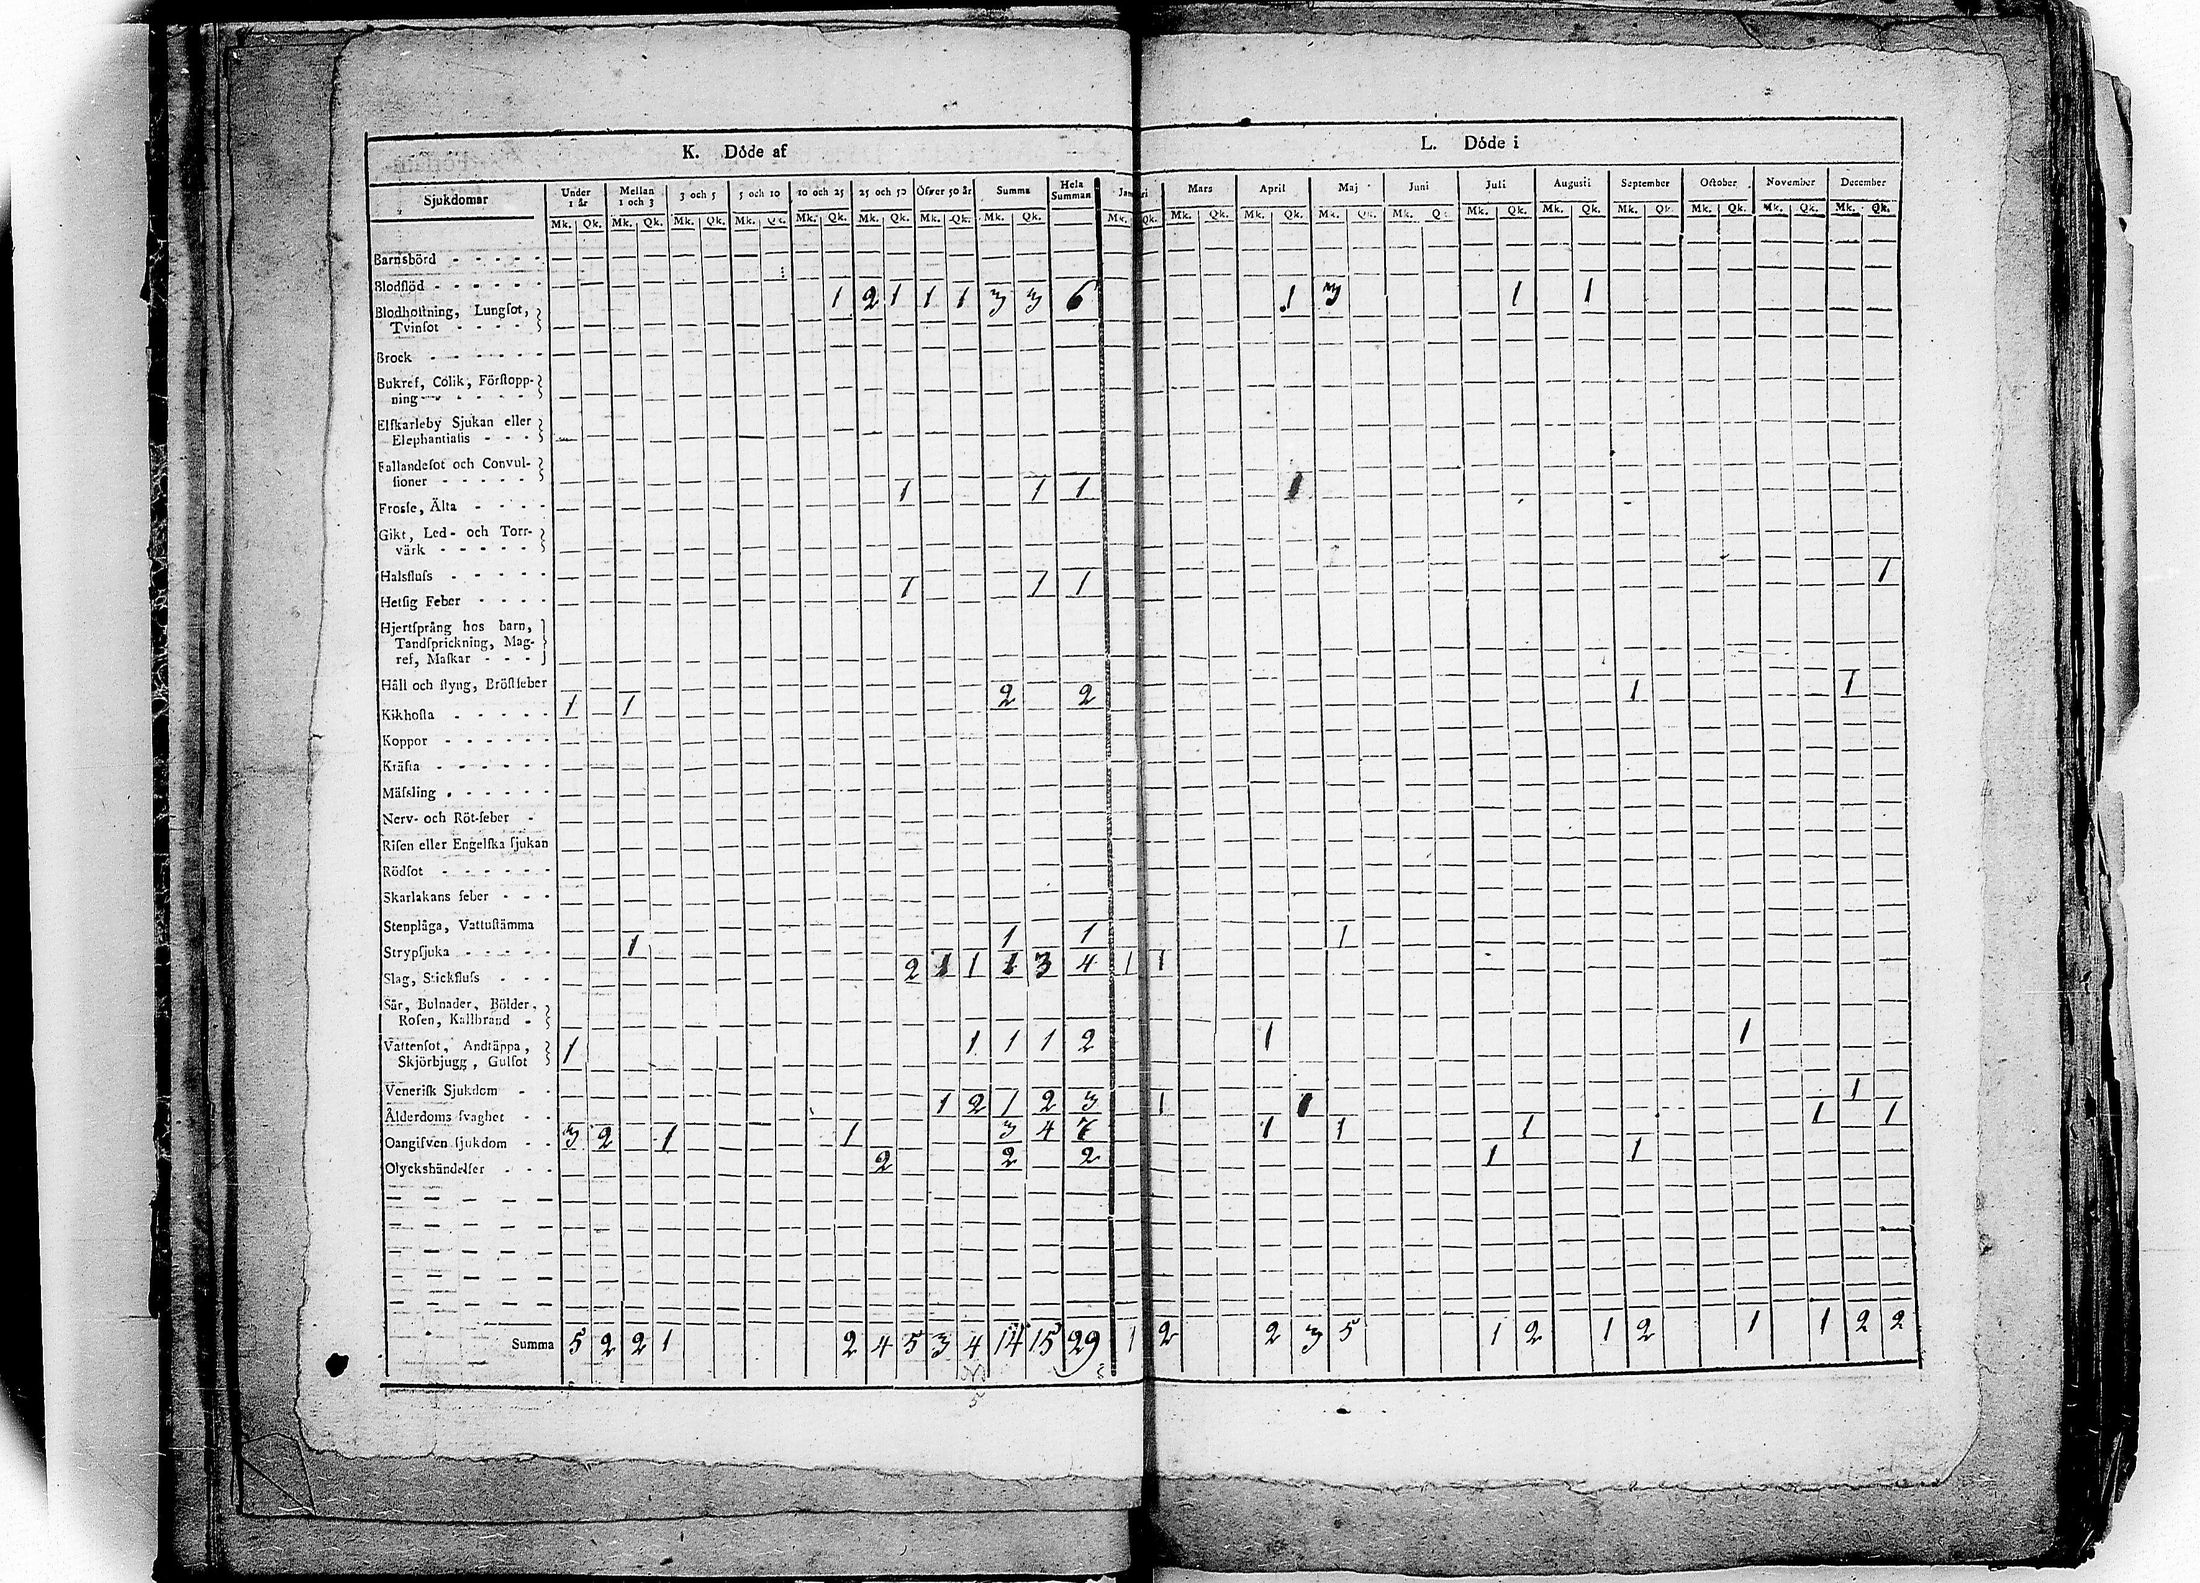 K. Döde af L. Döde i
Sjukdomar Under 1 år Mellan 1 och 3 3 och 5 5 och 10 10 och 25 25 och 50 Öfver 50 år Summa Hela Summan Mars April Maj Juni Juli Augusti September October November December
Mk. Qk. Mk. Qk. Mk. Qk. Mk. Qk. Mk. Qk. Mk. Qk. Mk. Qk. Mk. Qk. Mk. Qk. Mk. Qk. Mk. Qk. Mk. Qk. Mk. Qk. Mk. Qk. Mk. Qk. Mk. Qk. Mk. Qk. Mk. Qk. Mk. Qk.
Barnsbörd - - - - -
Blodflöd - - - - - -
Blodhoſtning, Lungſot, 1 2 1 1 1 3 3 6 1 3 1 1
Tvinſot - - - -
Brock - - - - - -
Bukref, Colik, Förſtopp-
ning - - - - - -
Elſkarleby Sjukan eller
Elephantiaſis - - -
Fallandeſot och Convul-
ſioner - - - - -
Froſſe, Älta - - - - 1 1 1 1
Gikt, Led- och Torr-
värk - - - - -
Halsfluſs - - - - -
Hetſig Feber - - - - 1 1 1 1
Hjertſprång hos barn,
Tandſprickning, Mag-
ref, Maſkar - - -
Håll och ſtyng, Bröſtfeber
Kikhoſta - - - - - 1 1 2 2 1 1
Koppor - - - - - -
Kräfta - - - - - -
Mäſsling - - - - - -
Nerv- och Röt-feber -
Riſen eller Engelſka ſjukan
Rödſot - - - - - -
Skarlakans feber - - -
Stenplåga, Vattuſtämma
Strypſjuka - - - - - 1 1 1 1
Slag, Stickfluſs - - - 2 1 1 1 3 4 1 1
Sår, Bulnader, Bölder,
Roſen, Kallbrand -
Vattenſot, Andtäppa, 1 1 1 1 2 1 1
Skjörbjugg, Gulſot
Veneriſk Sjukdom - -
Ålderdoms ſvaghet - - 1 2 1 2 3 1 1 1
Oangifven ſjukdom - - 3 2 1 1 3 4 7 1 1 1 1 1
Olyckshändelſer - - - 2 2 2 1 1
Summa 5 2 2 1 2 4 5 3 4 14 15 29 1 2 2 3 5 1 2 1 2 1 1 2 2
5